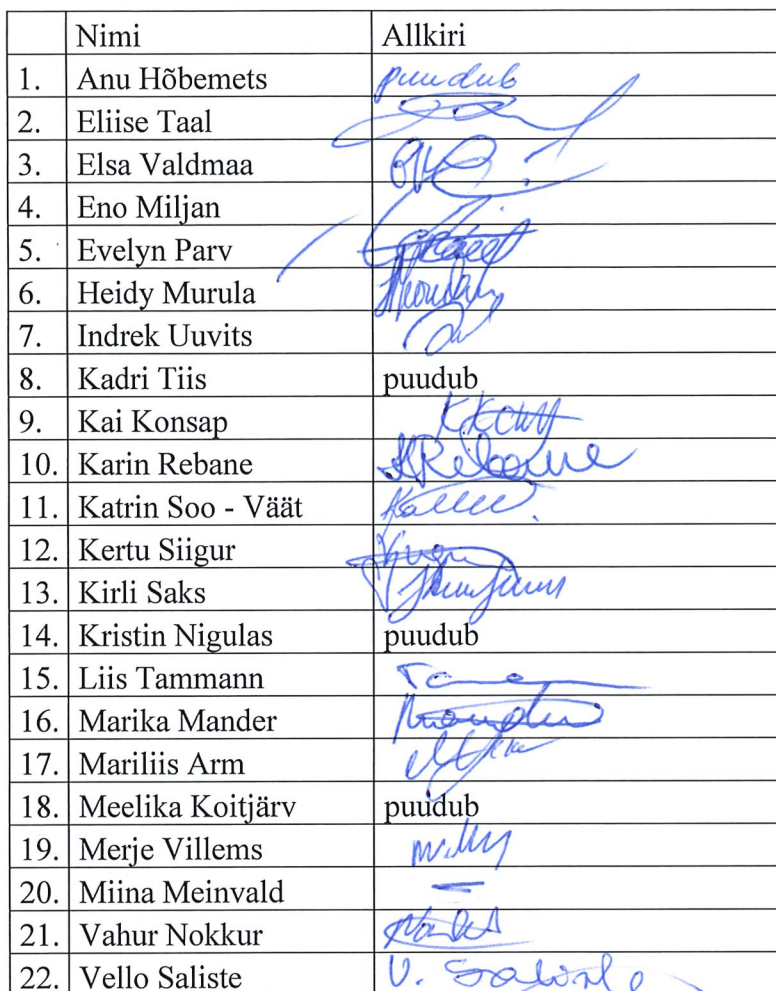 Nimi Allkiri
1. Anu Hõbemets puudub
2. Eliise Taal
3. Elsa Valdmaa
4. Eno Miljan
5. Evelyn Parv
6. Heidy Murula
7. Indrek Uuvits
8. Kadri Tiis puudub
9. Kai Konsap
10. Karin Rebane KRebane
11. Katrin Soo - Väät
12. Kertu Siigur
13. Kirli Saks
14. Kristin Nigulas puudub
15. Liis Tammann
16. Marika Mander
17. Mariliis Arm
18. Meelika Koitjärv puudub
19. Merje Villems
20. Miina Meinvald
21. Vahur Nokkur
22. Vello Saliste V. Saliste